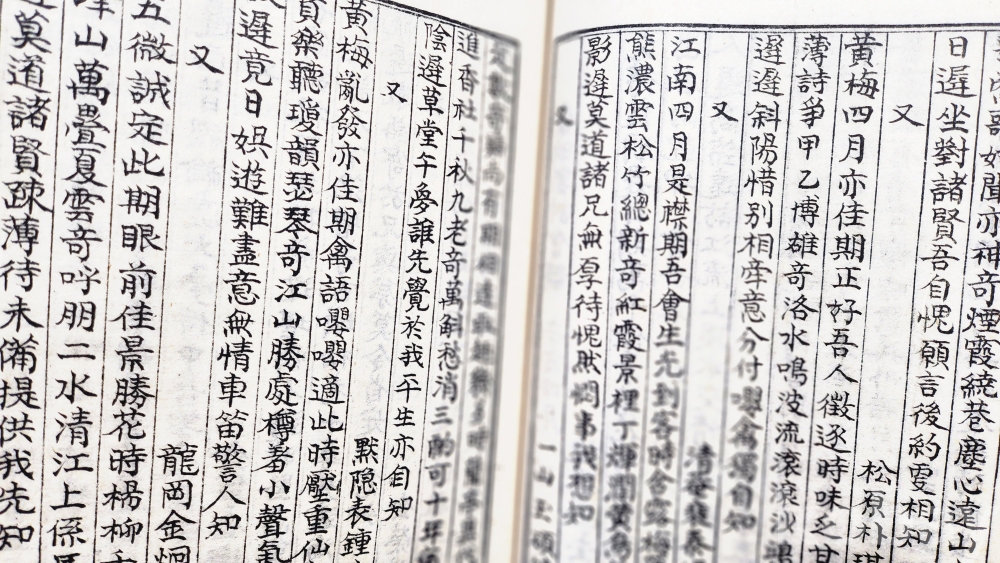 好聞亦神奇煙霞繞巷塵心遠山
日遲坐對諸賢吾自愧願言後約更相知
又
松原朴
黃梅四月亦佳期正好吾人徵逐時味乏甘
薄詩爭甲乙博雄奇洛水鳴波流滾滾沙鳴
遲遲斜陽惜別相牽意分付嚶禽獨自知
又
江南四月是禊期吾會生光到客時含露梅
熊濃雲松竹總新奇紅霞景裡丁輝潤黃鳥
影遲莫道諸兄無厚待愧然悶事我想知
又
一山
進香社千秋九老奇萬斛愁消三酌可十年
陰遲草堂午夢誰先覺於我平生亦自知
又
默隱表鍾
黃梅亂發亦佳期禽語嚶嚶適此時壓重仙
負樂聽瓊韻瑟琴奇江山勝處樽著小聲氣
遲竟日娛遊難盡意無情車笛警人知
又
龍岡金炯
五微誠定此期眼前佳景勝花時楊柳
山萬疊夏雲奇呼朋二水清江上係
莫道諸賢疎薄待未備提供我先知